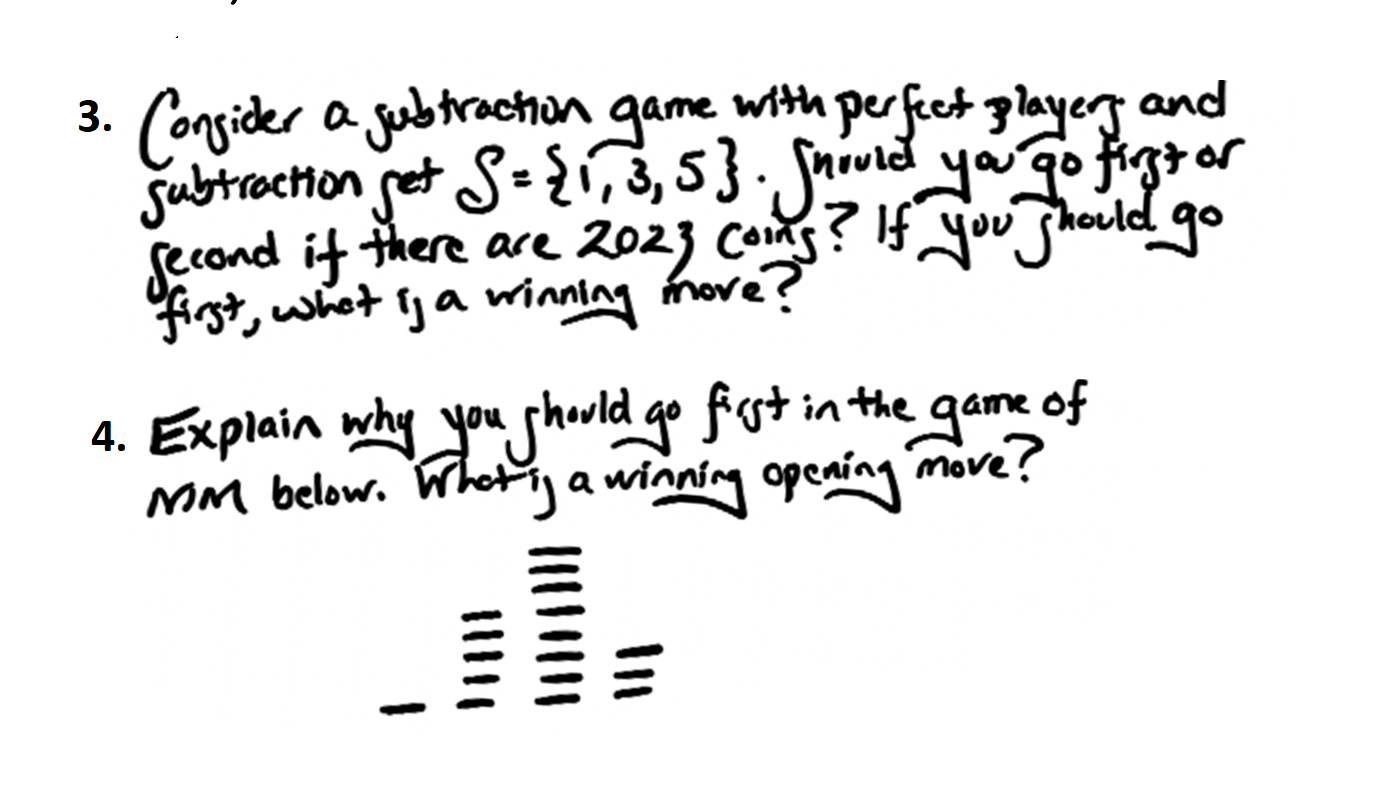 3. Consider a subtraction game with perfect players and
subtraction set S = {1, 3, 5}. Should you go first or
second if there are 2023 coins? If you should go
first, what is a winning move?
4. Explain why you should go first in the game of
NIM below. What is a winning opening move?